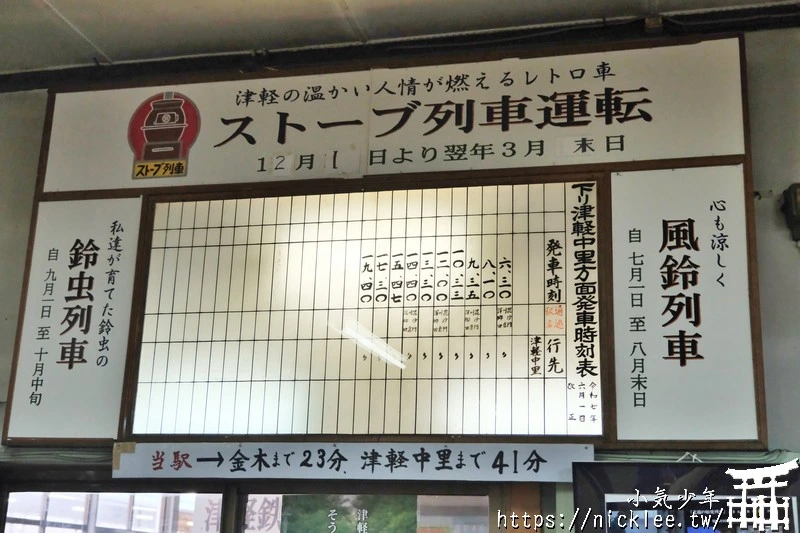 津軽の温かい人情が燃えるレトロ車
ストーブ列車運転
12月1日より翌年3月末日
ストーブ列車
心も涼しく
風鈴列車
自 七月一日 至 八月末日
下り津軽中里方面発車時刻表
令和七年
六月一日
改正
発車時刻
通過駅名
行先
津軽中里
六、三〇
八、一〇
九、三五
一〇、三三
一二、〇〇
一三、三〇
一四、四〇
一五、四七
一七、三〇
一九、四〇
私達が育てた鈴虫の
鈴虫列車
自 九月一日 至 十月中旬
当駅→金木まで23分、津軽中里まで41分
津軽鉄
津軽
そう
小気少年
https://nicklee.tw/